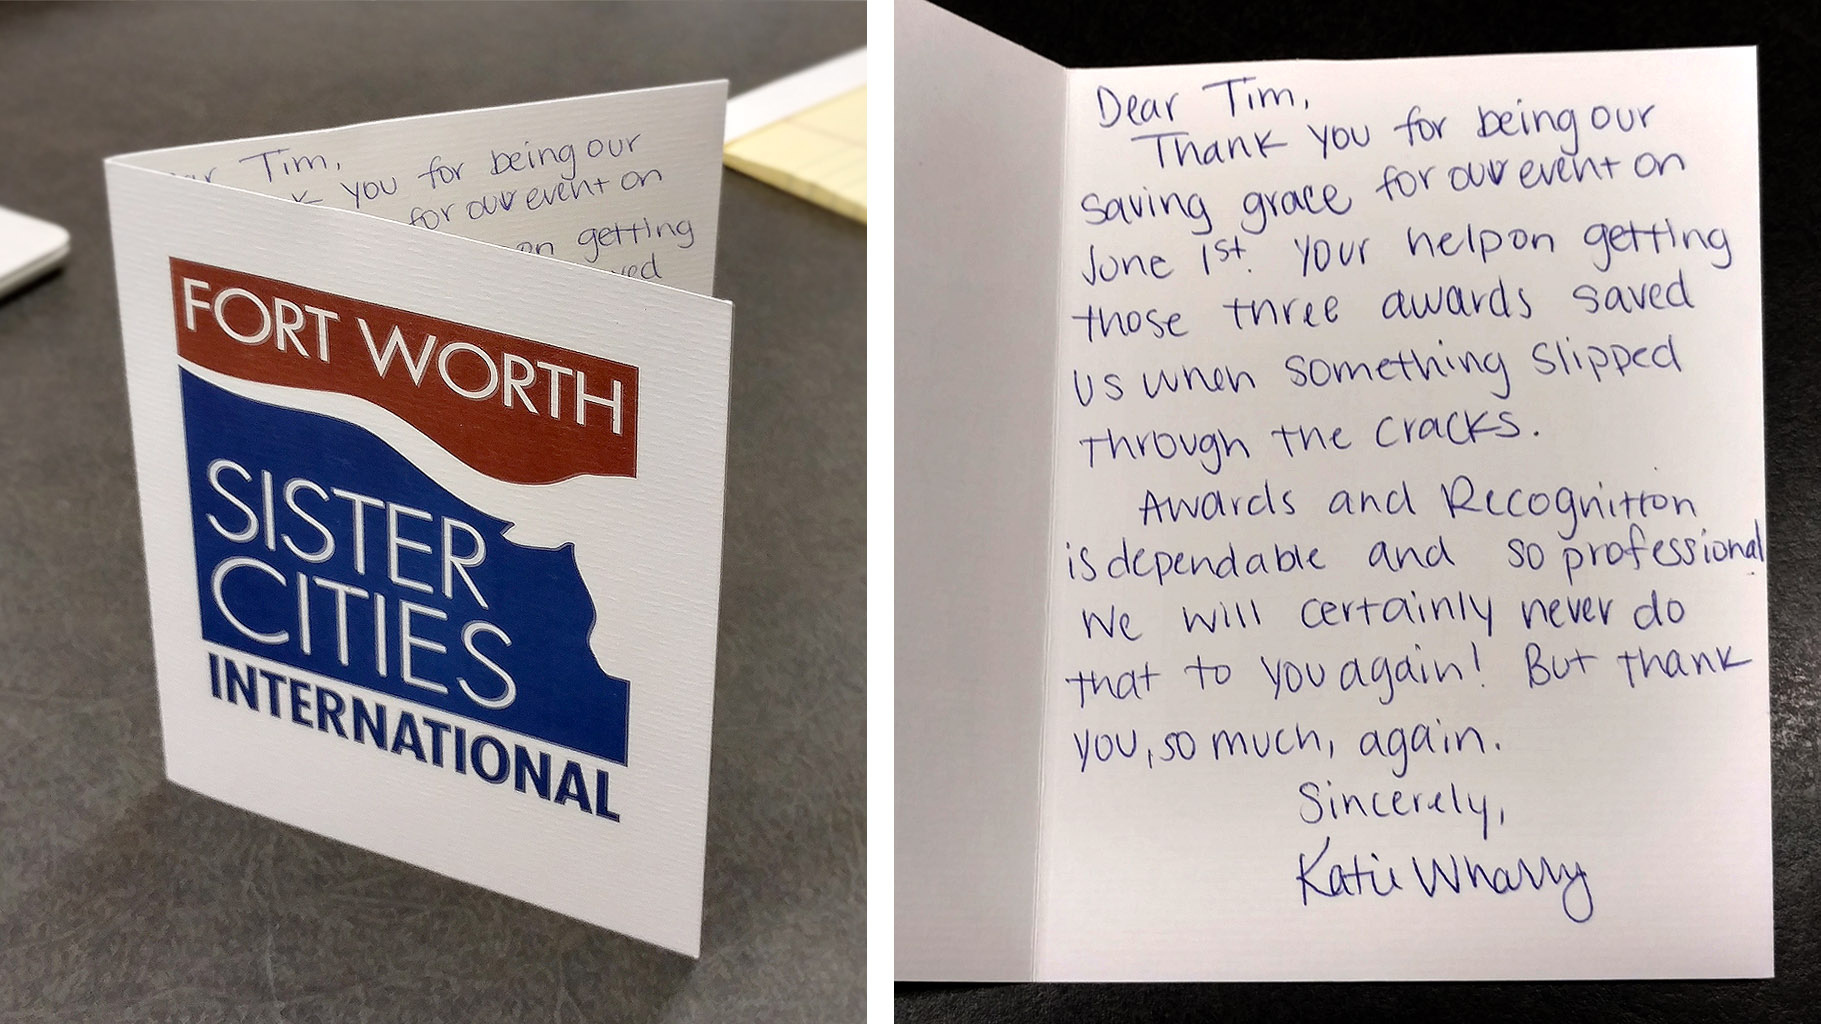 Tim,
you for being our
for our event on
on getting
FORT WORTH
SISTER
CITIES
INTERNATIONAL
Dear Tim,
Thank you for being our
saving grace for our event on
June 1st. Your help on getting
those three awards saved
us when something slipped
through the cracks.
Awards and Recognition
is dependable and so professional.
We will certainly never do
that to you again! But thank
you, so much, again.
Sincerely,
Katie Wharry